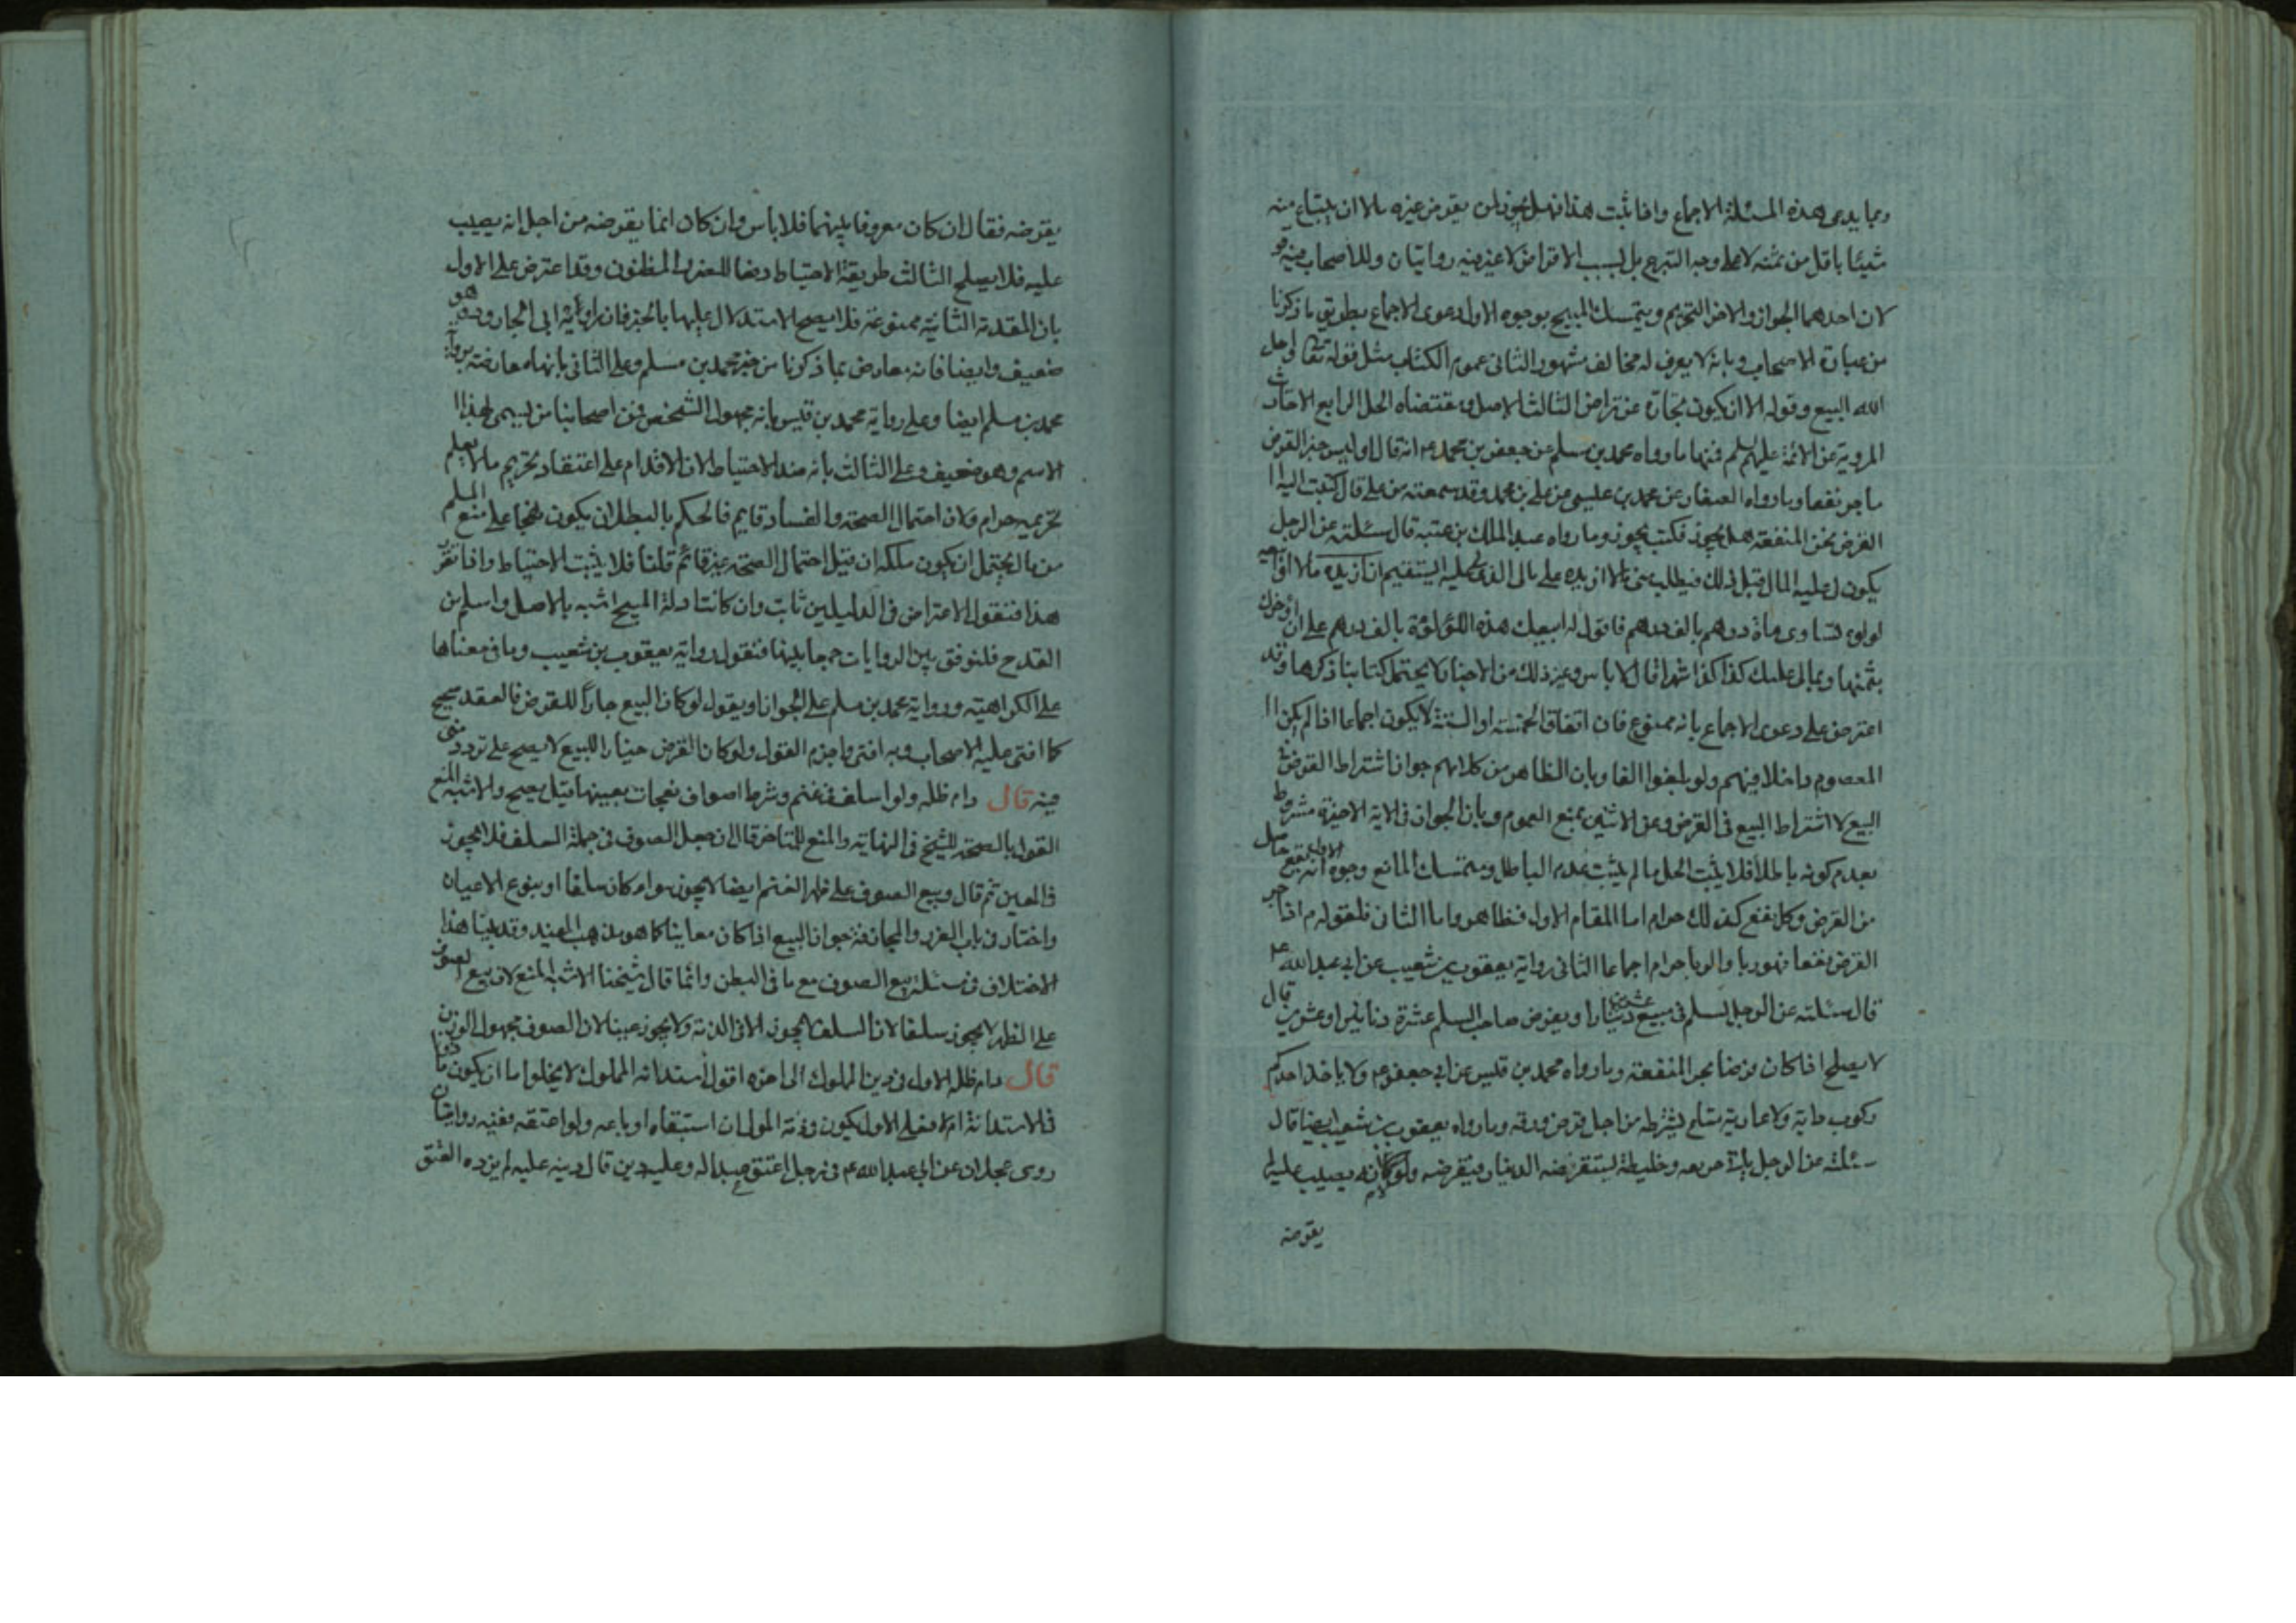 وبما يدعى هذه المسئلة الاجماع واذا ثبت هذا فهل يجوز لمن يقرض غيره مالا ان يبتاع منه
شيئا باقل من ثمنه لا على وجه التبرع بل بسبب الاقراض لا غير فيه روايتان وللاصحاب فيه قو
لان احدهما الجواز والاخر التحريم ويتمسك المبيح بوجوه الاول دعوى الاجماع بطريق ما ذكرنا
من عبارة الاصحاب وبانه لا يعرف له مخالف مشهور الثانى عموم الكتاب مثل قوله تعالى واحل
الله البيع وقوله الا ان يكون تجارة عن تراض الثالث الاصل ومقتضاه الحل الرابع الاحاديث
المروية عن الائمة عليهم السلم فمنها ما رواه محمد بن مسلم عن جعفر بن محمد ع انه قال اوليس خير القرض
ما جر نفعا وما رواه الصفار عن محمد بن عيسى عن على بن محمد وقد سمعته من على قال كتبت اليه ا
القرض يجر المنفعة هل يجوز فكتب يجوز وما رواه عبد الملك بن عتبة قال سئلته عن الرجل
يكون لى عليه المال قبل ذلك فيطلب منى مالا ازيده على مالى الذى لى عليه ايستقيم ان ازيده مالا او ابيعه
لولوء تساوى مأة درهم بالف درهم فاقول له ابيعك هذه اللؤلؤة بالف درهم على ان اؤخرك
بثمنها وبمالى عليك كذا كذا شهرا قال لا باس وغير ذلك من الاخبار لا يحتمل كتابنا ذكرها وقد
اعترض على دعوى الاجماع بانه ممنوع فان اتفاق الخمسة او الستة لا يكون اجماعا اذا لم يكن ا
المعصوم داخلا فيهم ولو بلغوا الفا وبان الظاهر من كلامهم جواز اشتراط القرض فى
البيع لا اشتراط البيع فى القرض وعن الاثنين بمنع العموم وبان الجواز فى الاية الاخيرة مشروط
بعدم كونه باطلا فلا يثبت الحل ما لم يثبت عدم الباطل ومتمسك المانع وجوه الاول انه نفع حاصل
من القرض وكل نفع كذلك حرام اما المقام الاول فظاهر واما الثانى فلقوله م اذا جر
القرض نفعا فهو ربا والربا حرام اجماعا الثانى رواية يعقوب بن شعيب عن ابى عبد الله ع
قال سئلته عن الرجل يسلم فى بيع عشرين دينارا ويقرض صاحب السلم عشرة دنانير او عشرين قال
لا يصلح اذا كان قرضا يجر المنفعة وما رواه محمد بن قيس عن ابى جعفر ع ولا ياخذ احدكم
ركوب دابة ولا عارية متاع يشترطه من اجل قرض ورقه وما رواه يعقوب بن شعيب ايضا قال
سئلته عن الرجل ياتى حريفه وخليطه يستقرضه الدينار فيقرضه ولولا انه يصيب عليه لم
يقرضه
يقرضه فقال ان كان معروفا بينهما فلا باس وان كان انما يقرضه من اجل انه يصيب
عليه فلا يصلح الثالث طريقة الاحتياط دفعا للضرر المظنون وقد اعترض على الاول
بان المقدمة الثانية ممنوعة فلا يصح الاستدلال عليها بالخبر فان راويه ابى الجارود وهو
ضعيف وايضا فانه معارض بما ذكرنا من خبر محمد بن مسلم وعلى الثانى بانها معارضة برواية
محمد بن مسلم ايضا وعلى رواية محمد بن قيس بانه مجهول الشخص فمن اصحابنا من يسمى بهذا ا
الاسم وهو ضعيف وعلى الثالث بانه ضد الاحتياط لان الاقدام على اعتقاد تحريم ما لا يعلم
تحريمه حرام ولان احتمال الصحة والفساد قايم فالحكم بالبطلان يكون تهجما على منع المسلم
من مال يحتمل ان يكون ملكه ان قيل احتمال الصحة غير قائم قلنا فلا يثبت الاحتياط واذا تقرر
هذا فنقول الاعتراض فى الدليلين ثابت وان كانت ادلة المبيح اشبه بالاصل واسلم من
القدح فلنوفق بين الروايات جمعا بينها فنقول رواية يعقوب بن شعيب وما فى معناها
على الكراهية ورواية محمد بن مسلم على الجواز او يقول لو كان البيع جارا للقرض فالعقد صحيح
كما افتى عليه الاصحاب وبه افتى واجزم القول ولو كان القرض جارا للبيع لا يصح على تردد منى
فيه قال دام ظله ولو اسلف فى غنم وشرط اصواف نعجات بعينها قيل يصح والاشبه المنع
القول بالصحة للشيخ فى النهاية والمنع للمتاخر قال ان جعل الصوف فى جملة السلف فلا يجوز
فى المعين ثم قال وبيع الصوف على ظهر الغنم ايضا لا يجوز سواء كان سلفا او بيوع الاعيان
واختار فى باب الغرر والمجازفة جواز البيع اذا كان معاينا كما هو مذهب المفيد وقد بينا هذا
الاختلاف فى مسئلة بيع الصوف مع ما فى البطن وانما قال شيخنا الاشبه المنع لان بيع الصوف
على الظهر لا يجوز سلفا لان السلف لا يجوز الا فى الذمة ولا يجوز عينا لان الصوف مجهول الوزن
قال دام ظله الاول فى دين المملوك الى اخره اقول استدانة المملوك لا يخلوا ما ان يكون ماذونا
فى الاستدانة ام لا فعلى الاول يكون فى ذمة المولى ان استبقاه او باعه ولو اعتقه ففيه روايتان
روى عجلان عن ابى عبد الله ع فى رجل اعتق عبدا له وعليه دين قال دينه عليه لم يزده العتق